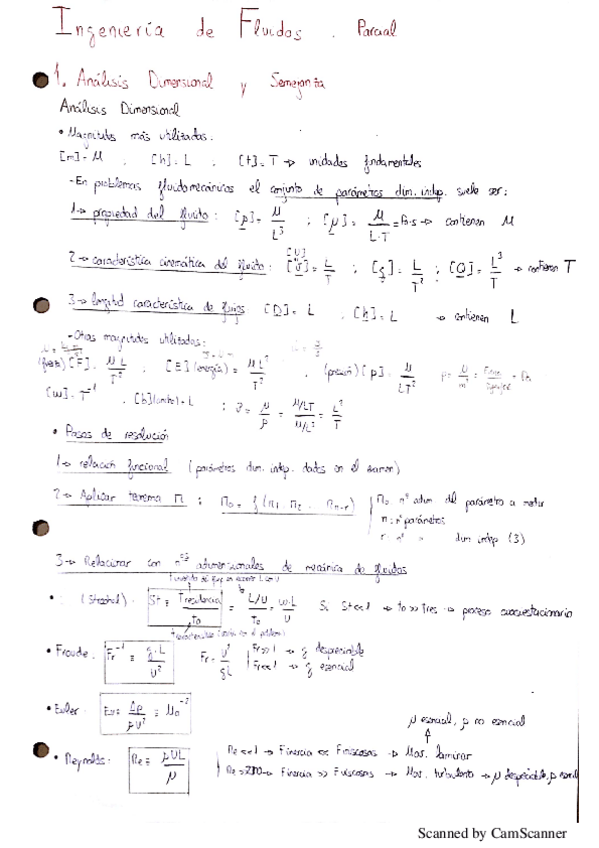 Ingeniería de Fluidos. Parcial
1. Análisis Dimensional y Semejanza
Análisis Dimensional
• Magnitudes más utilizadas:
[m]=M , [h]=L , [t]=T → unidades fundamentales
-En problemas fluidomecánicos el conjunto de parámetros dim. indep. suele ser:
1→ propiedad del fluido: [ρ]= M/L³ ; [μ]= M/L·T = Pa·s → contienen M
[U]
2→ característica cinemática del flujo: [v]= L/T ; [g]= L/T² ; [Q]= L³/T → contienen T
3→ longitud característica de flujo: [D]= L , [h]= L → contienen L
-Otras magnitudes utilizadas:
(fuerza) [F]= ML/T² ; [E] (energía) = ML²/T² , (presión) [p]= M/LT²
[ω]= T⁻¹ , [h] = L ; ν= μ/ρ = M/LT / M/L³ = L²/T
• Pasos de resolución
1→ relación funcional (parámetros dim. indep. dados en el examen)
2→ Aplicar teorema Π : Π₀ = f (Π₁, Π₂ ... Πn-r) Π₀ nº adim. del parámetro a medir
n: nº parámetros
r: nº " dim indep (3)
3→ Relacionar con nºs adimensionales de mecánica de fluidos
• (Strouhal): St = Tresidencia/to = L/U / to = ω·L/U Si St<<1 → to>>Tres → proceso cuasiestacionario
• Froude: Fr⁻¹ = g·L/U² Fr= U²/gL Fr>>1 → g despreciable
Fr<<1 → g esencial
• Euler: Eu= Δp/ρU² = M₀⁻²
μ esencial, ρ no esencial
• Reynolds: Re= ρUL/μ Re<<1 → Finercia << Fviscosas → Mov. laminar
Finercia >> Fviscosas → Mov. turbulento → μ despreciable,
Scanned by CamScanner